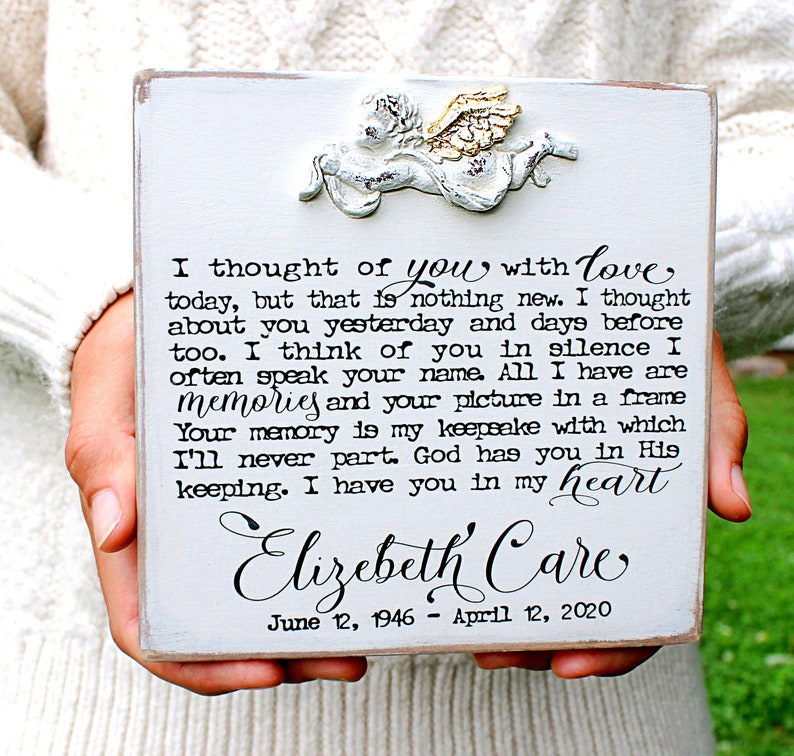 I thought of you with love
today, but that is nothing new. I thought
about you yesterday and days before
too. I think of you in silence I
often speak your name. All I have are
memories and your picture in a frame
Your memory is my keepsake with which
I'll never part. God has you in His
keeping. I have you in my heart
Elizebeth Care
June 12, 1946 - April 12, 2020